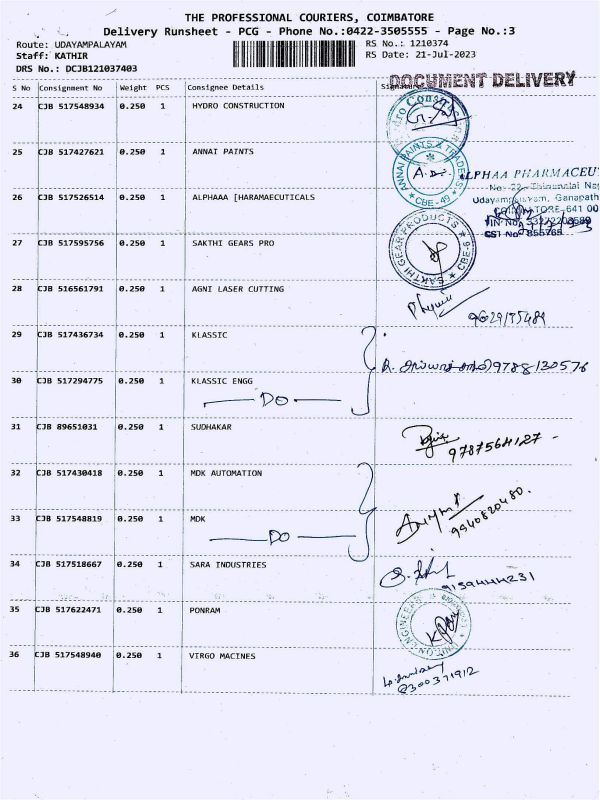 THE PROFESSIONAL COURIERS, COIMBATORE
Delivery Runsheet - PCG - Phone No.:0422-3505555 - Page No.:3
Route: UDAYAMPALAYAM
RS No.: 1210374
Staff: KATHIR
RS Date: 21-Jul-2023
DRS No.: DCJB121037403
DOCUMENT DELIVERY
S No Consignment No Weight PCS Consignee Details
24 CJB 517548934 0.250 1 HYDRO CONSTRUCTION
25 CJB 517427621 0.250 1 ANNAI PAINTS
ANNAI PAINTS & TRADERS
CBE-49
26 CJB 517526514 0.250 1 ALPHAAA [HARAMAECUTICALS
ALPHAA PHARMACEUT
No. 22, Thirumalai Nag
Udayampalayam, Ganapath
COIMBATORE-641 00
27 CJB 517595756 0.250 1 SAKTHI GEARS PRO
SAKTHI GEAR PRODUCTS
CBE-6
28 CJB 516561791 0.250 1 AGNI LASER CUTTING
29 CJB 517436734 0.250 1 KLASSIC
9788130576
30 CJB 517294775 0.250 1 KLASSIC ENGG
DO
31 CJB 89651031 0.250 1 SUDHAKAR
9787564127
32 CJB 517430418 0.250 1 MDK AUTOMATION
9940820480.
33 CJB 517548819 0.250 1 MDK
DO
34 CJB 517518667 0.250 1 SARA INDUSTRIES
9159444231
35 CJB 517622471 0.250 1 PONRAM
36 CJB 517548940 0.250 1 VIRGO MACINES